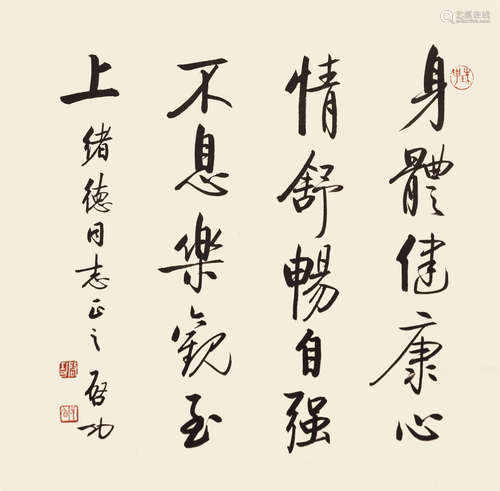 身體健康心
情舒暢自强
不息樂觀至
上
绪德同志正之 啓功